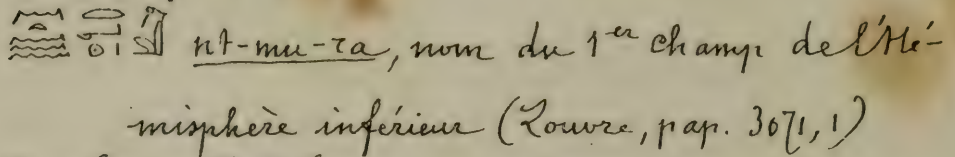 nt-mu-ra, nom du 1er champ de l'Hé-
misphère inférieur (Louvre, pap. 3071, 1)